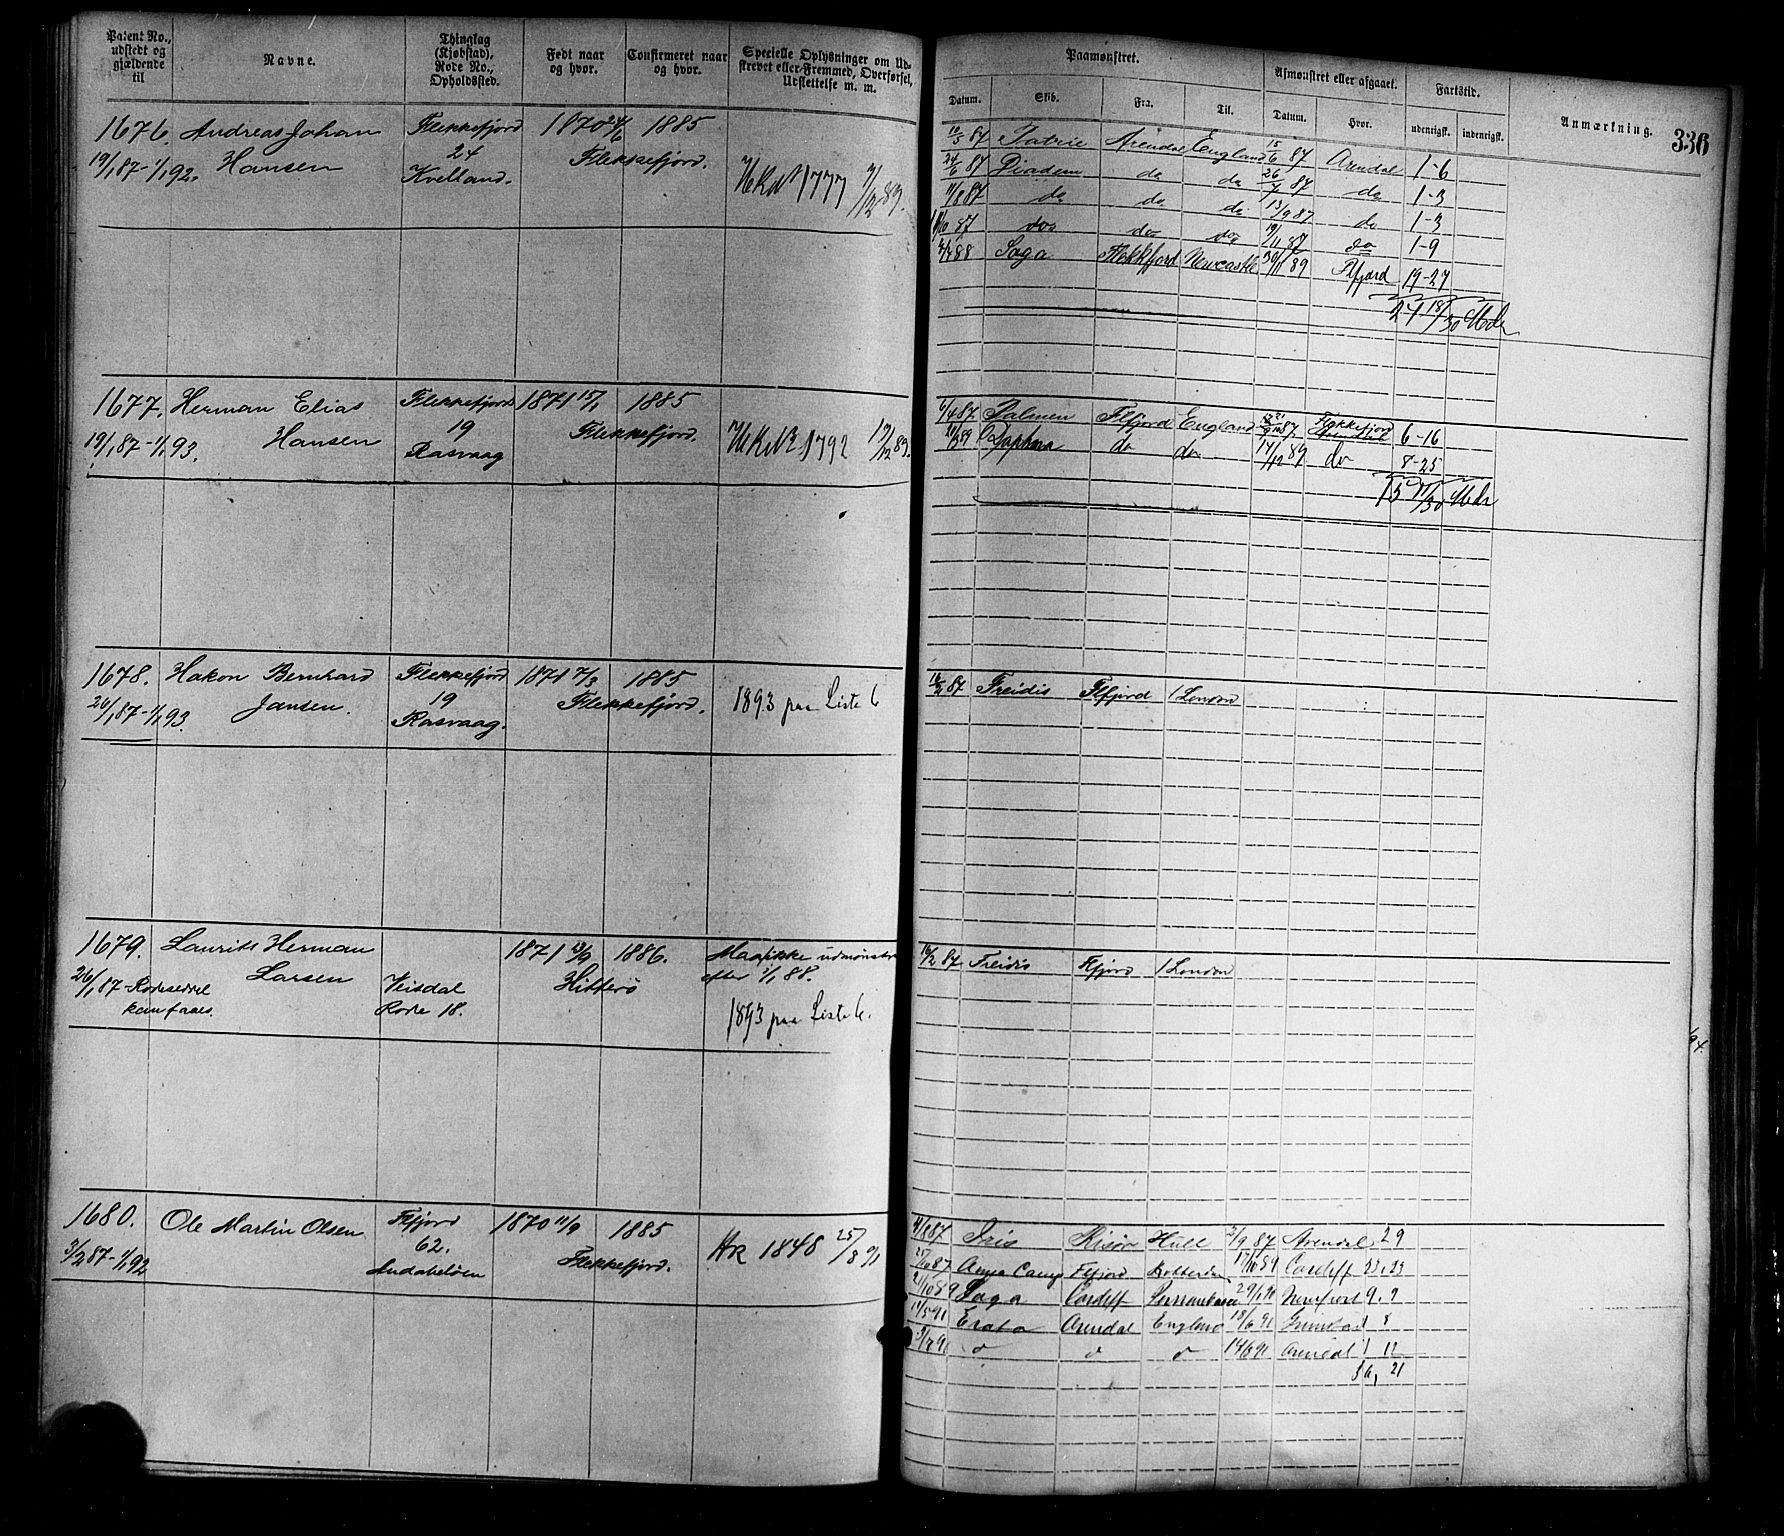 Patent No., udstedt og gjældende til
Navne.
Thinglag (Kjøbstad), Rode No., Opholdssted.
Født naar og hvor.
Confirmeret naar og hvor.
Specielle Oplysninger om Udstrevet eller Fremmed, Overførsel, Udslettelse m. m.
1676. Andreas Johan Flekkefjord 1870 24/6 1885
19/1 87-1/1 92. Hansen 24 Flekkefjord.
Kvelland. HKNr 1777 7/12 89.
1677. Herman Elias Flekkefjord 1871 15/1 1885
19/1 87-1/1 93. Hansen 19 Flekkefjord. HKNr 1792 19/12 89.
Rasvaag
1678. Hakon Bernhard Flekkefjord 1871 7/3 1885
26/1 87-1/1 93. Jansen. 19 Flekkefjord. 1893 paa Liste 6
Rasvaag.
1679. Laurits Herman 1871 23/9 1886. Maa ikke udmønstres
26/1 87-Rodeseddel Larsen Veisdal Hitterø efter 1/1 88.
kun faaes. Rode 18. 1893 paa Liste 6.
1680. Ole Martin Olsen Ffjord 1870 11/9 1885
3/2 87-1/1 92 62. Flekkefjord. HK 1848 25/8 91
Andabeløen
Paamønstret.
Afmønstret eller afgaaet.
Fartstid.
Anmærkning.
336
Datum. Skib. Fra. Til. Datum. Hvor. udenrigsk. indenrigsk.
10/5 87 Patrie Arendal England 15/6 87 Arendal 1-6
24/6 87 Diadem do do 26/7 87 do 1-3
11/8 87 do do do 13/9 87 do 1-3
11/10 87 do do do 19/11 87 do 1-9
2/2 88 Saga Flekkfjord Newcastle 30/11 89 Ffjord 19-27
24 18/30 Mdr
6/4 87. Palmen Ffjord England 87. Flekkefjord 6-16
89 Daphna do do 14/12 89 do 8-25
15 11/30 Mdr
16/2 87 Freidis Ffjord London
16/2 87 Freidis Ffjord London
4/8 87 Iris Risør Hull 2/9 87 Arendal 29
87 Anna Camp Ffjord Rotterdam 17/10 89 Cardiff 23, 23
21/10 89 Saga Cardiff 29/1 90 Newport 9. 9
14/5 91 Erato Arendal England 18/6 91 Grimstad 1 8
3/7 91 d d d 14/8 91 Arendal 1 12
36, 21